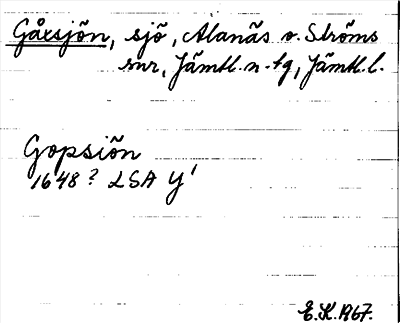 Gåxsjön, sjö, Alanäs o. Ströms
snr, Jämtl. n. tg, Jämtl. l.
Gopsiön
1648? LSA Y'
E.K. 1967.